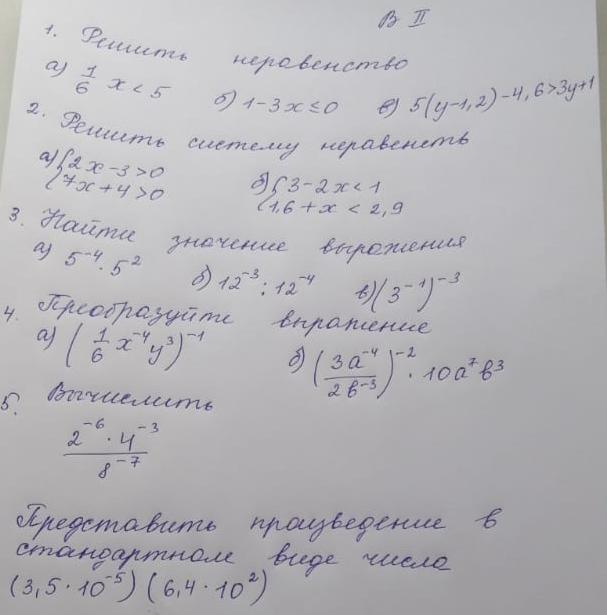 В II
1. Решить неравенство
а) 1/6 x < 5 б) 1-3x ≤ 0 в) 5(y-1,2)-4,6>3y+1
2. Решить систему неравенств
а) { 2x-3>0 б) { 3-2x<1
7x+4>0 1,6+x < 2,9
3. Найти значение выражения
а) 5⁻⁴ · 5² б) 12⁻³ : 12⁻⁴ в) (3⁻¹)⁻³
4. Преобразуйте выражение
а) (1/6 x⁻⁴ y³)⁻¹ б) (3a⁻⁴/2b⁻³)⁻² · 10a⁷b³
5. Вычислить
2⁻⁶ · 4⁻³
8⁻⁷
Представить произведение в
стандартном виде числа
(3,5·10⁻⁵) (6,4·10²)